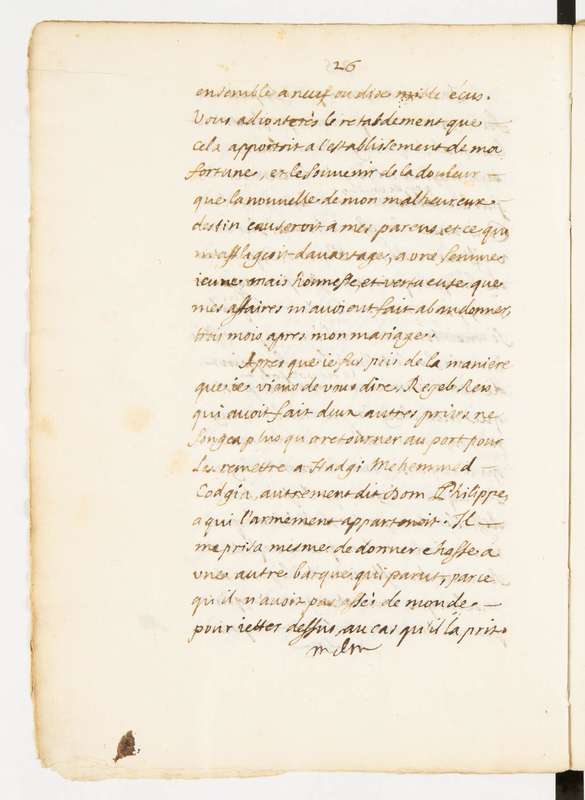 26
ensemble a neuf ou dixe mile écus.
Vous adjouterés le retardement que
cela apportoit a l'establissement de ma
fortune, et le souvenir de la douleur
que la nouvelle de mon malheureux
destin causeroit a mes parens, et ce qui
m'affligeoit davantage, a une femme
ieune, mais honneste et vertueuse que
mes affaires m'avoient fait abandonner,
trois mois apres mon mariage.
Apres que ie fus pris de la maniere
que ie viens de vous dire, Regeb Reis
qui avoit fait deux autres prises ne
songea plus qu'a retourner au port pour
les remettre a Hadgi Mehemmed
Codgia, autrement dit Dom Philippe,
a qui l'armement appartenoit. Il
meprisa mesme de donner chasse a
une autre barque qui parut, parce
qu'il n'avoit pas assés de monde
pour ietter dessus, au cas qu'il la prist.